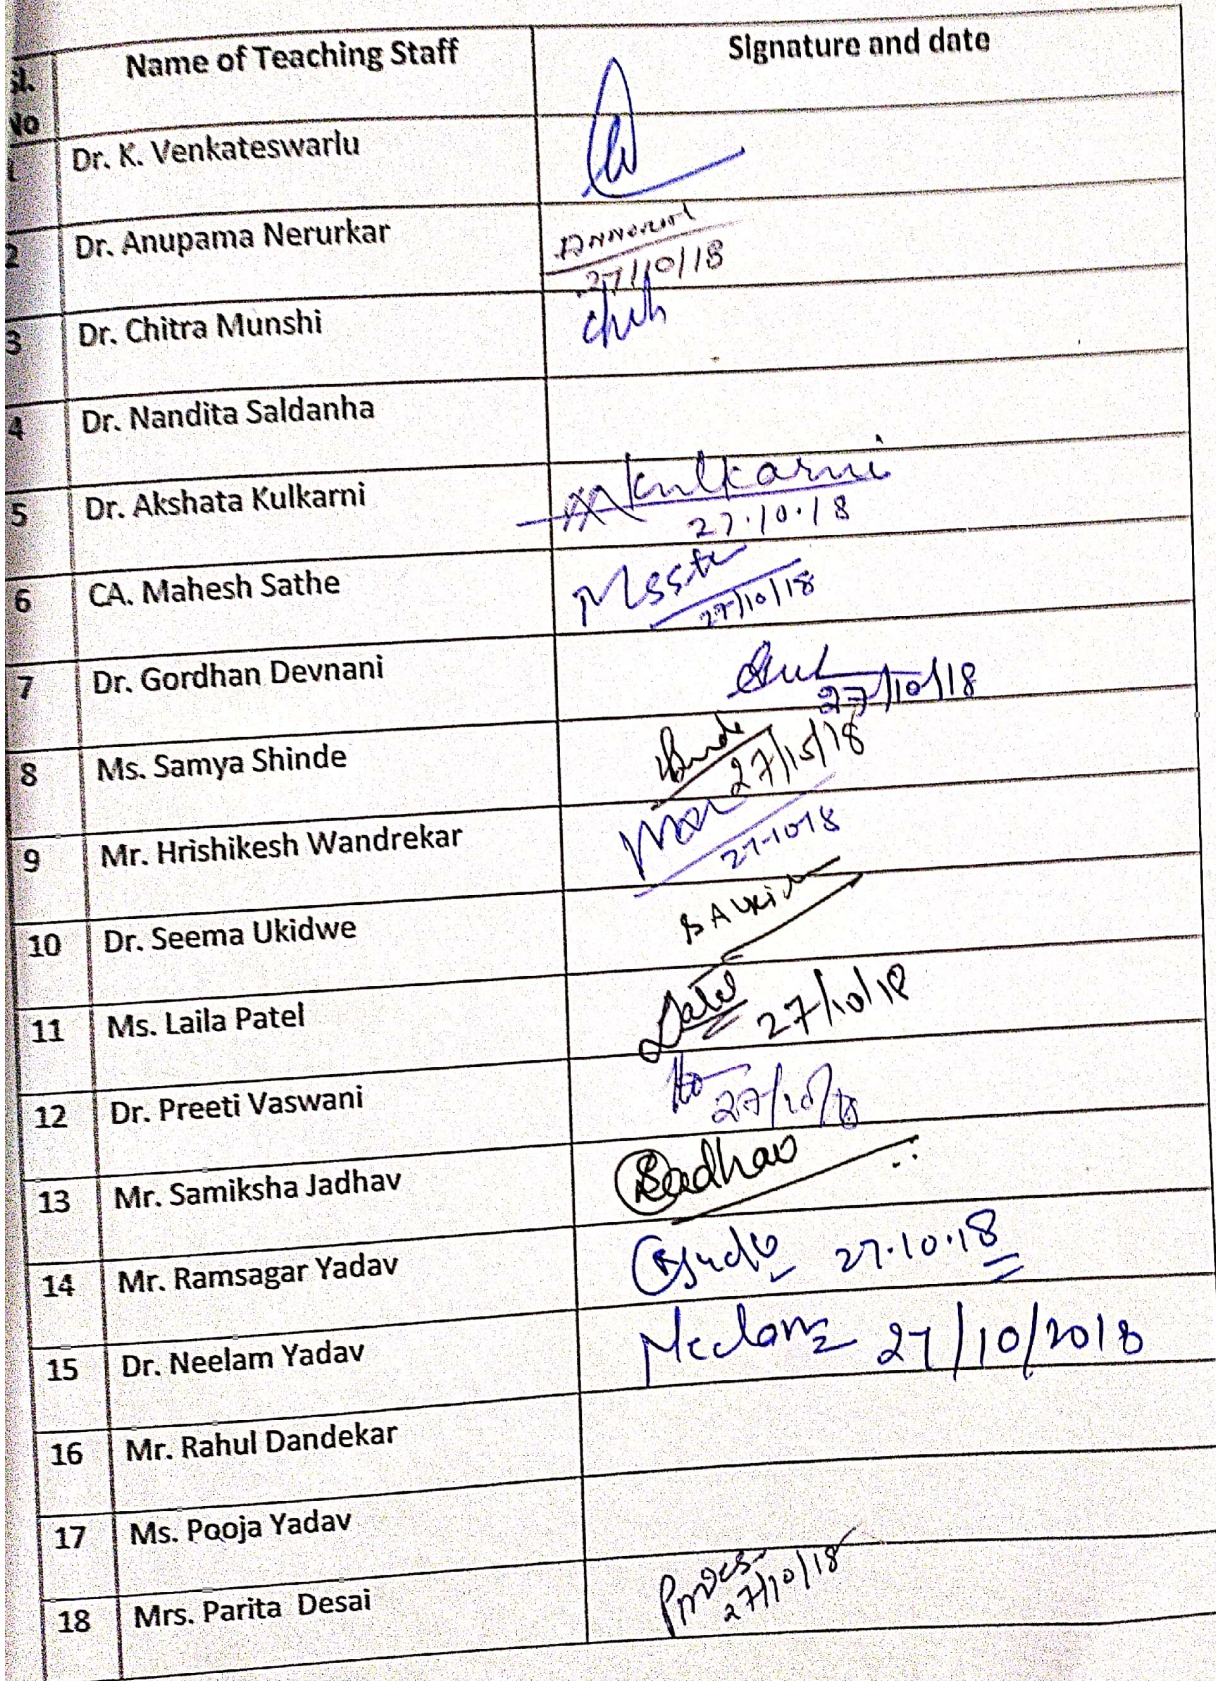 Sl. No Name of Teaching Staff Signature and date
1 Dr. K. Venkateswarlu
2 Dr. Anupama Nerurkar 27/10/18
3 Dr. Chitra Munshi
4 Dr. Nandita Saldanha
5 Dr. Akshata Kulkarni Kulkarni 27.10.18
6 CA. Mahesh Sathe 27/10/18
7 Dr. Gordhan Devnani 27/10/18
8 Ms. Samya Shinde
9 Mr. Hrishikesh Wandrekar 27-10-18
10 Dr. Seema Ukidwe
11 Ms. Laila Patel 27/10/18
12 Dr. Preeti Vaswani 27/10/18
13 Mr. Samiksha Jadhav
14 Mr. Ramsagar Yadav 27.10.18
15 Dr. Neelam Yadav 27/10/2018
16 Mr. Rahul Dandekar
17 Ms. Pooja Yadav
18 Mrs. Parita Desai 27/10/18